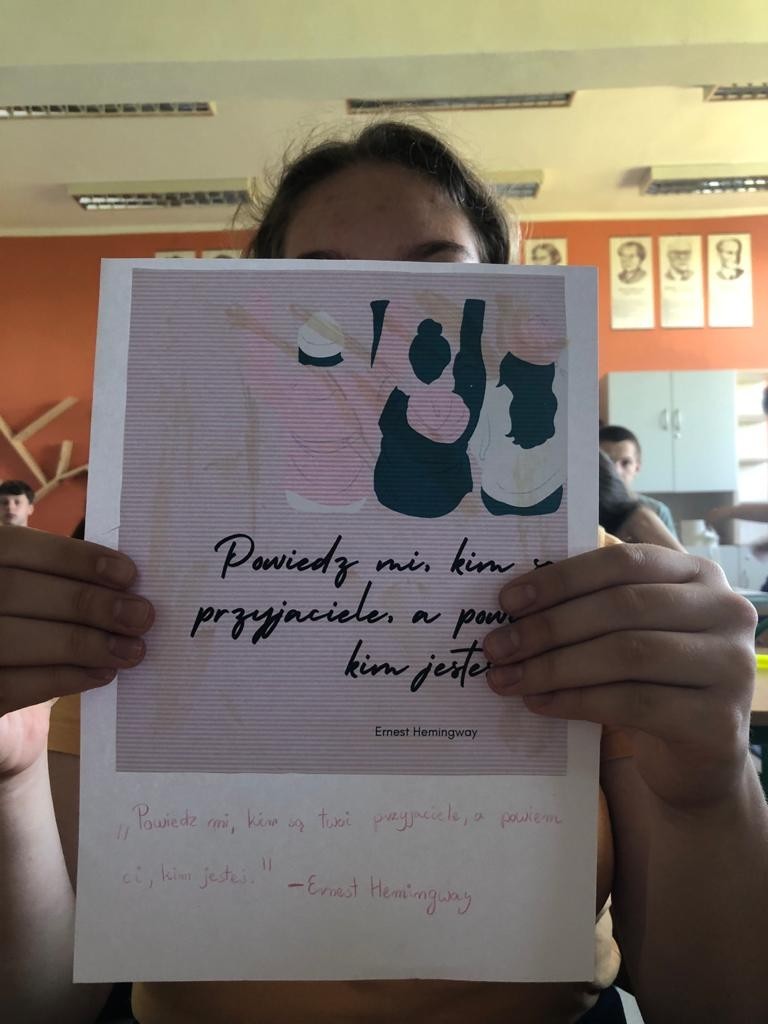 Powiedz mi, kim
przyjaciele, a
kim
Ernest Hemingway
„Powiedz mi, kim są twoi przyjaciele, a powiem
ci, kim jesteś."
-Ernest Hemingway